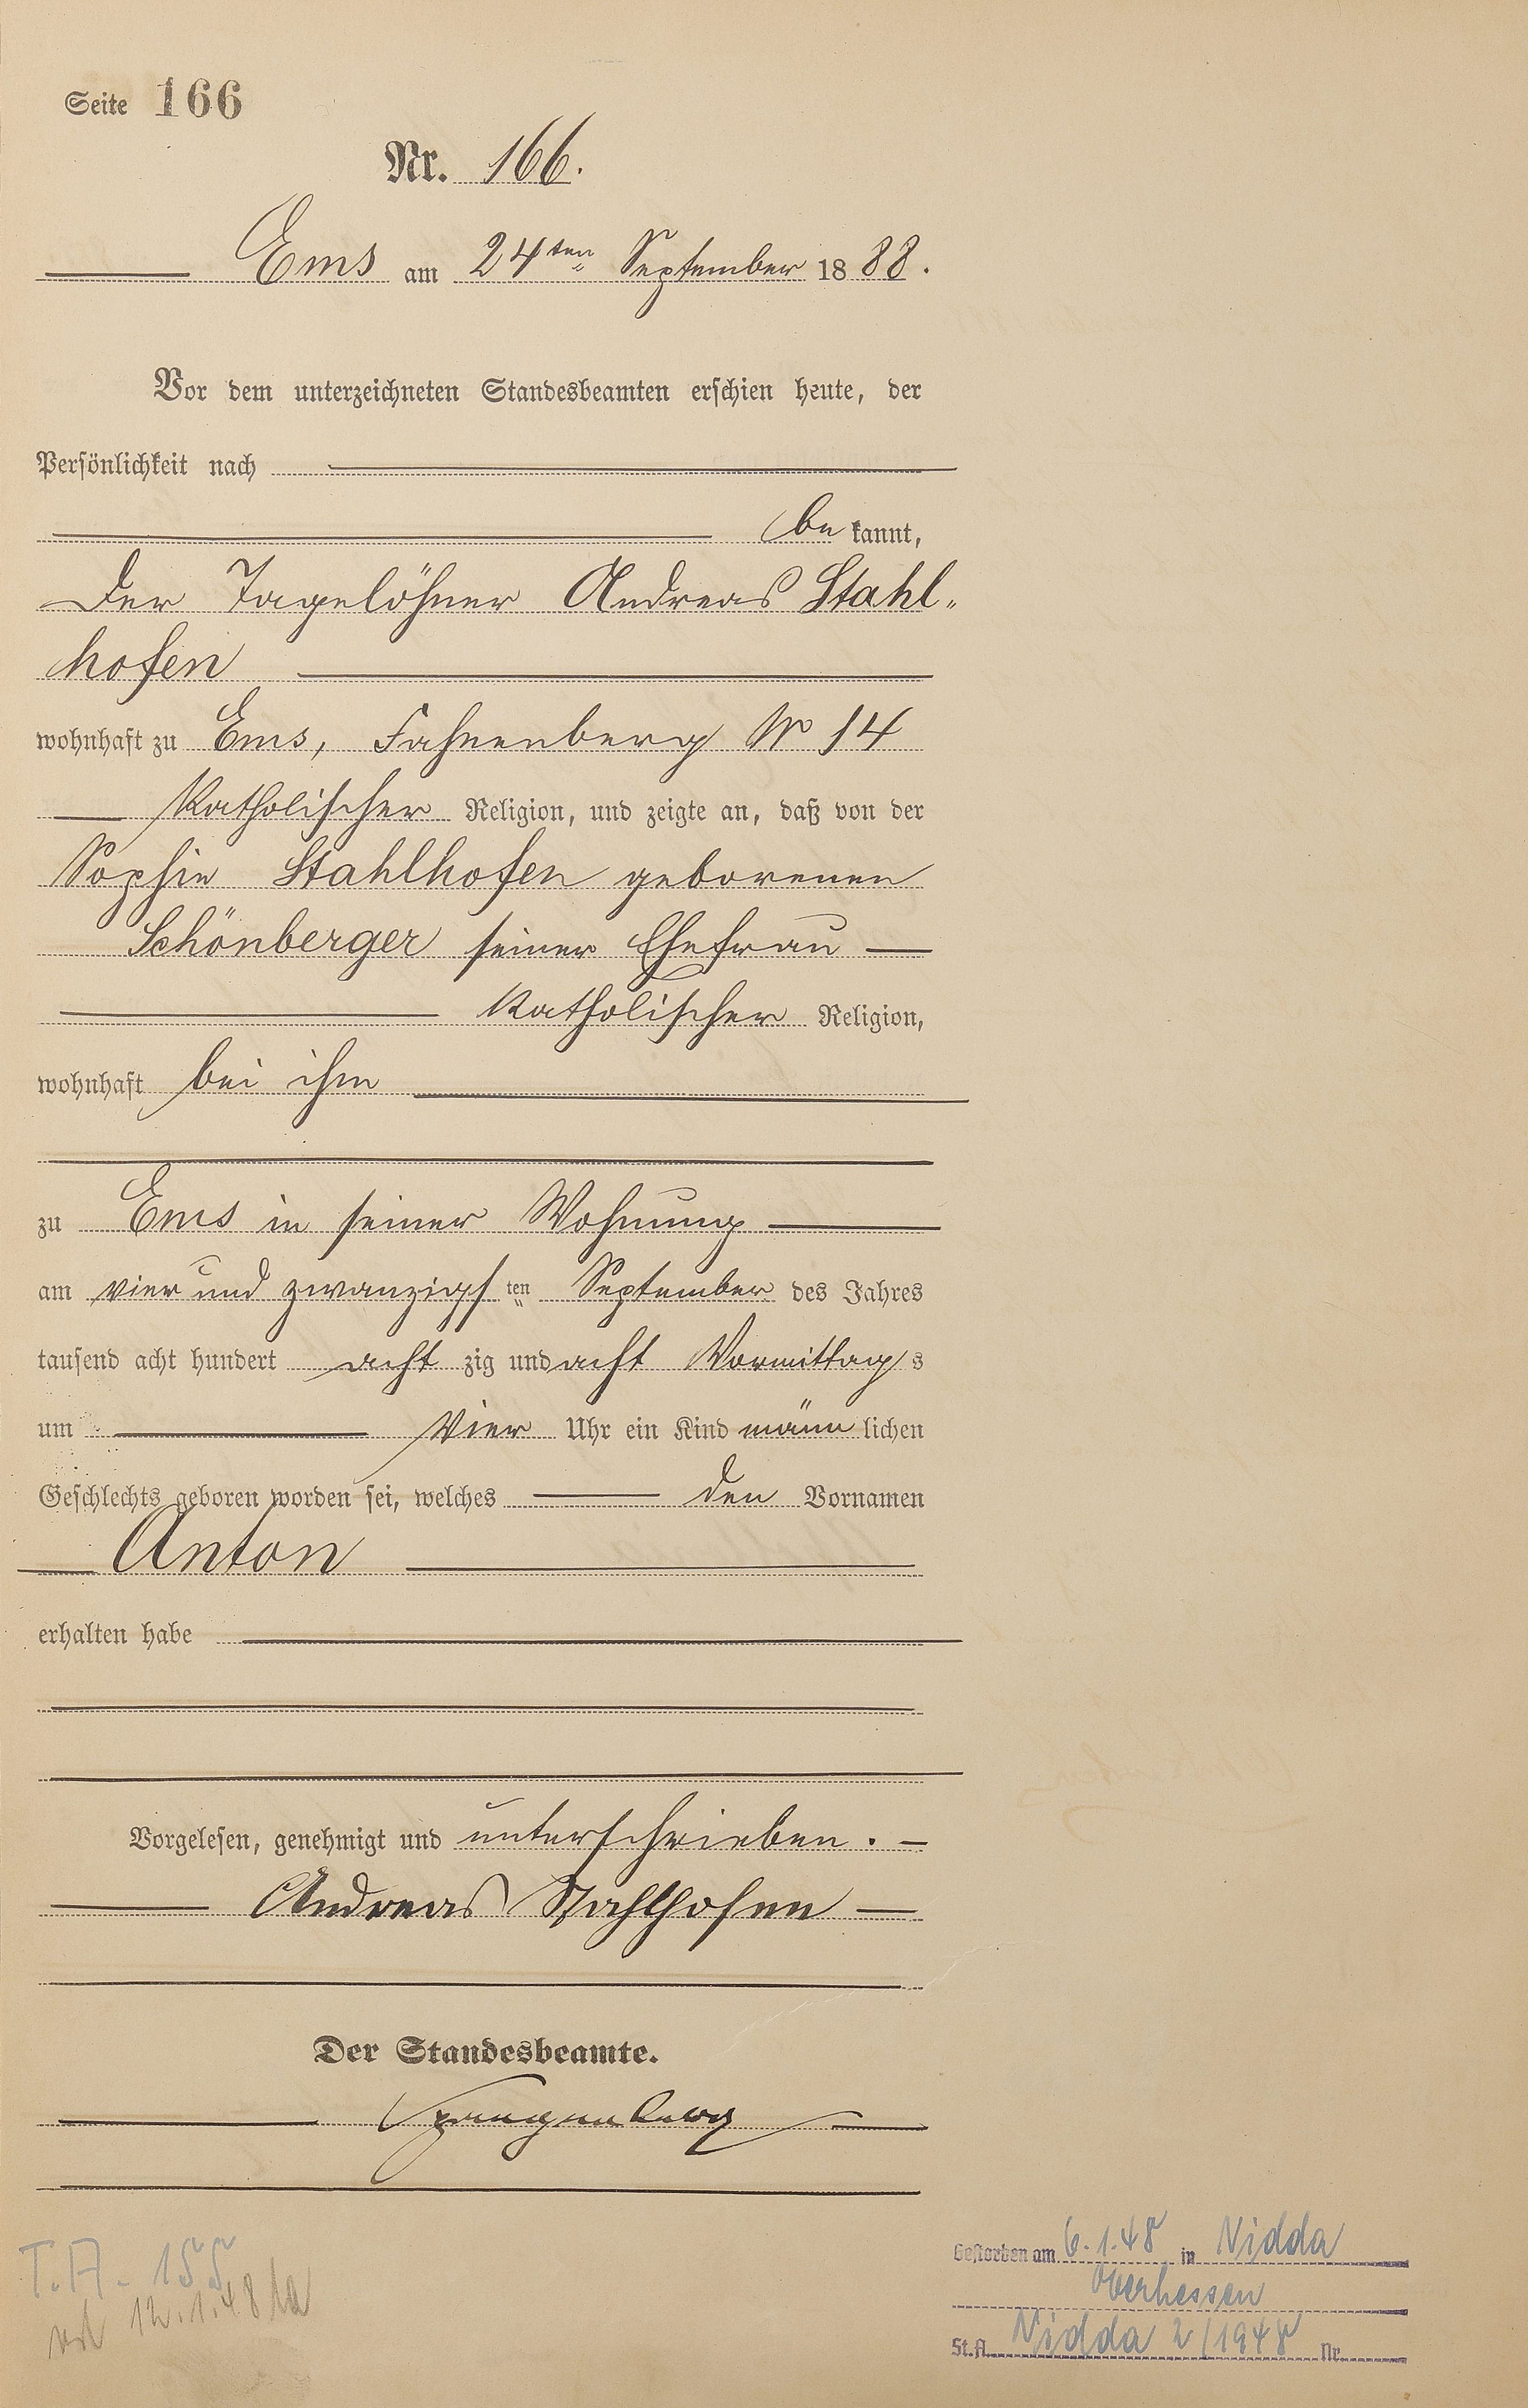 Seite 166
Nr. 166.
Ems am 24ten September 1888.
Vor dem unterzeichneten Standesbeamten erschien heute, der
Persönlichkeit nach
be kannt,
der Tagelöhner Andreas Stahl-
hofen
wohnhaft zu Ems, Fahnenberg No 14
Katholischer Religion, und zeigte an, daß von der
Sophie Stahlhofen geborenen
Schönberger seiner Ehefrau
Katholischer Religion,
wohnhaft bei ihm
zu Ems in seiner Wohnung
am vier und zwanzigsten September des Jahres
tausend acht hundert acht zig und acht Vormittags
um Vier Uhr ein Kind männlichen
Geschlechts geboren worden sei, welches den Vornamen
Anton
erhalten habe
Vorgelesen, genehmigt und unterschrieben.
Andreas Stahlhofen
Der Standesbeamte.
Spangenberg
T.A. 155
12.1.48
Gestorben am 6.1.48 in Nidda
Oberhessen
St.A. Nidda 2/1948 Nr.